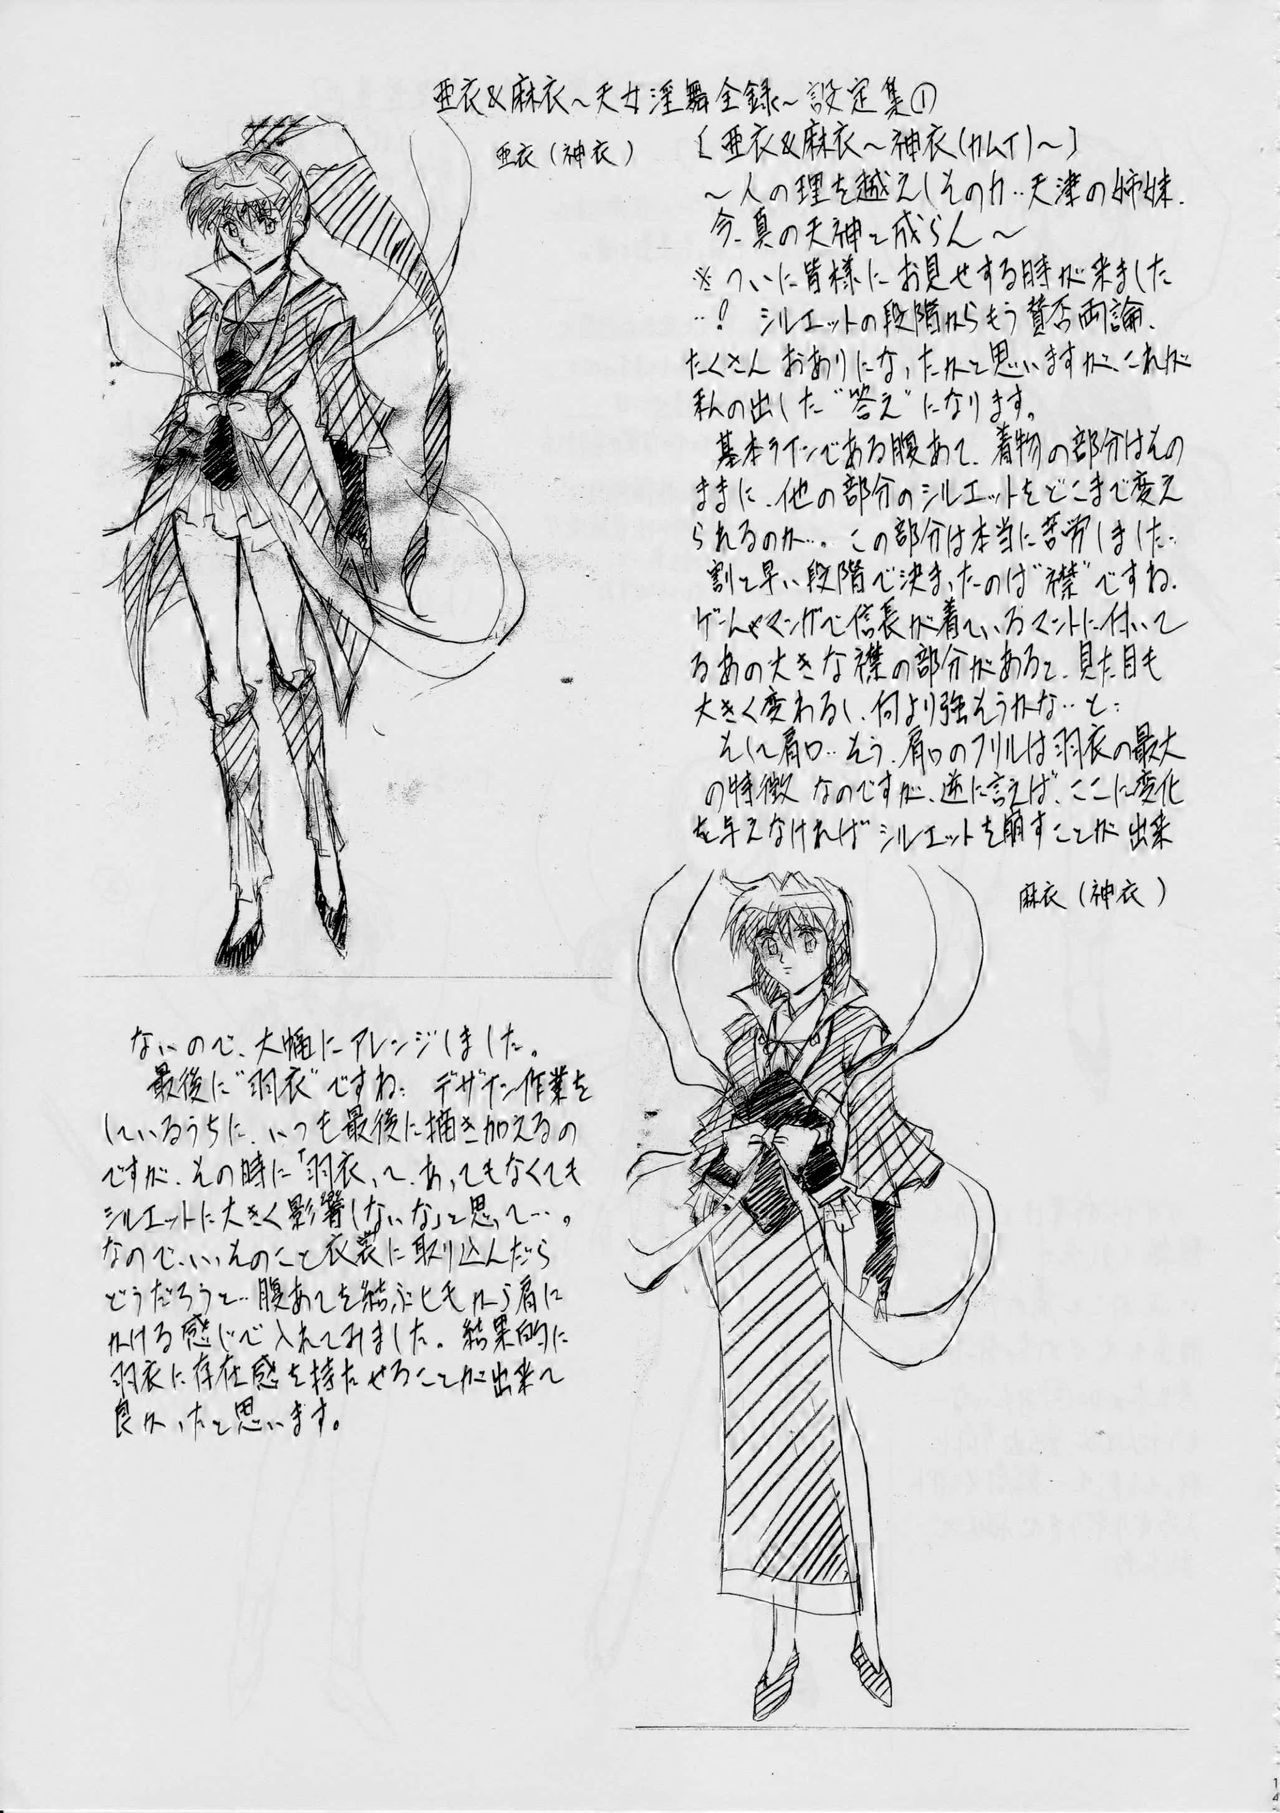 亜衣&麻衣~天女淫舞全録~設定集①
亜衣(神衣)
[亜衣&麻衣~神衣(カムイ)~]
~人の理を越えしその力‥天津の姉妹、
今、真の天神と成らん~
※ついに皆様にお見せする時が来ました
‥!シルエットの段階からもう賛否両論、
たくさんおありになったかと思いますが、これが
私の出した"答え"になります。
基本ラインである腹あて、着物の部分はその
ままに、他の部分のシルエットをどこまで変え
られるのか‥。この部分は本当に苦労しました‥
割と早い段階で決まったのは"襟"ですね、
ゲームやマンガで信長が着ているマントに付いて
るあの大きな襟の部分があると、見た目も
大きく変わるし、何より強そうかな‥と‥
そして肩口‥そう、肩口のフリルは羽衣の最大
の特徴なのですが、逆に言えば、ここに変化
を与えなければシルエットを崩すことが出来
麻衣(神衣)
ないので、大幅にアレンジしました。
最後に"羽衣"ですね‥デザイン作業を
しているうちに、いつも最後に描き加えるの
ですが、その時に「羽衣って、あってもなくても
シルエットに大きく影響しないな」と思って‥。
なので、いっそのこと衣装に取り込んだら
どうだろうと‥腹あてを結ぶヒモから肩に
かける感じで入れてみました。結果的に
羽衣に存在感を持たせることが出来て
良かったと思います。
14